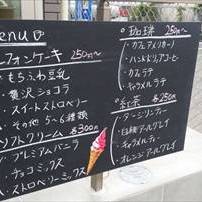 menu
フォンケーキ 250円〜
・もちふわ豆乳
・贅沢ショコラ
・スイートストロベリー
・その他 5〜6種類
ソフトクリーム 各300円
・プレミアムバニラ
・チョコミックス
・ストロベリーミックス
珈琲 250円〜
・カフェアメリカーノ
・ハンドドリップコーヒー
・カフェラテ
・キャラメルラテ
紅茶 各250円
・ダージリンティー
・白桃アールグレイ
・キャラメルティー
・オレンジアールグレイ